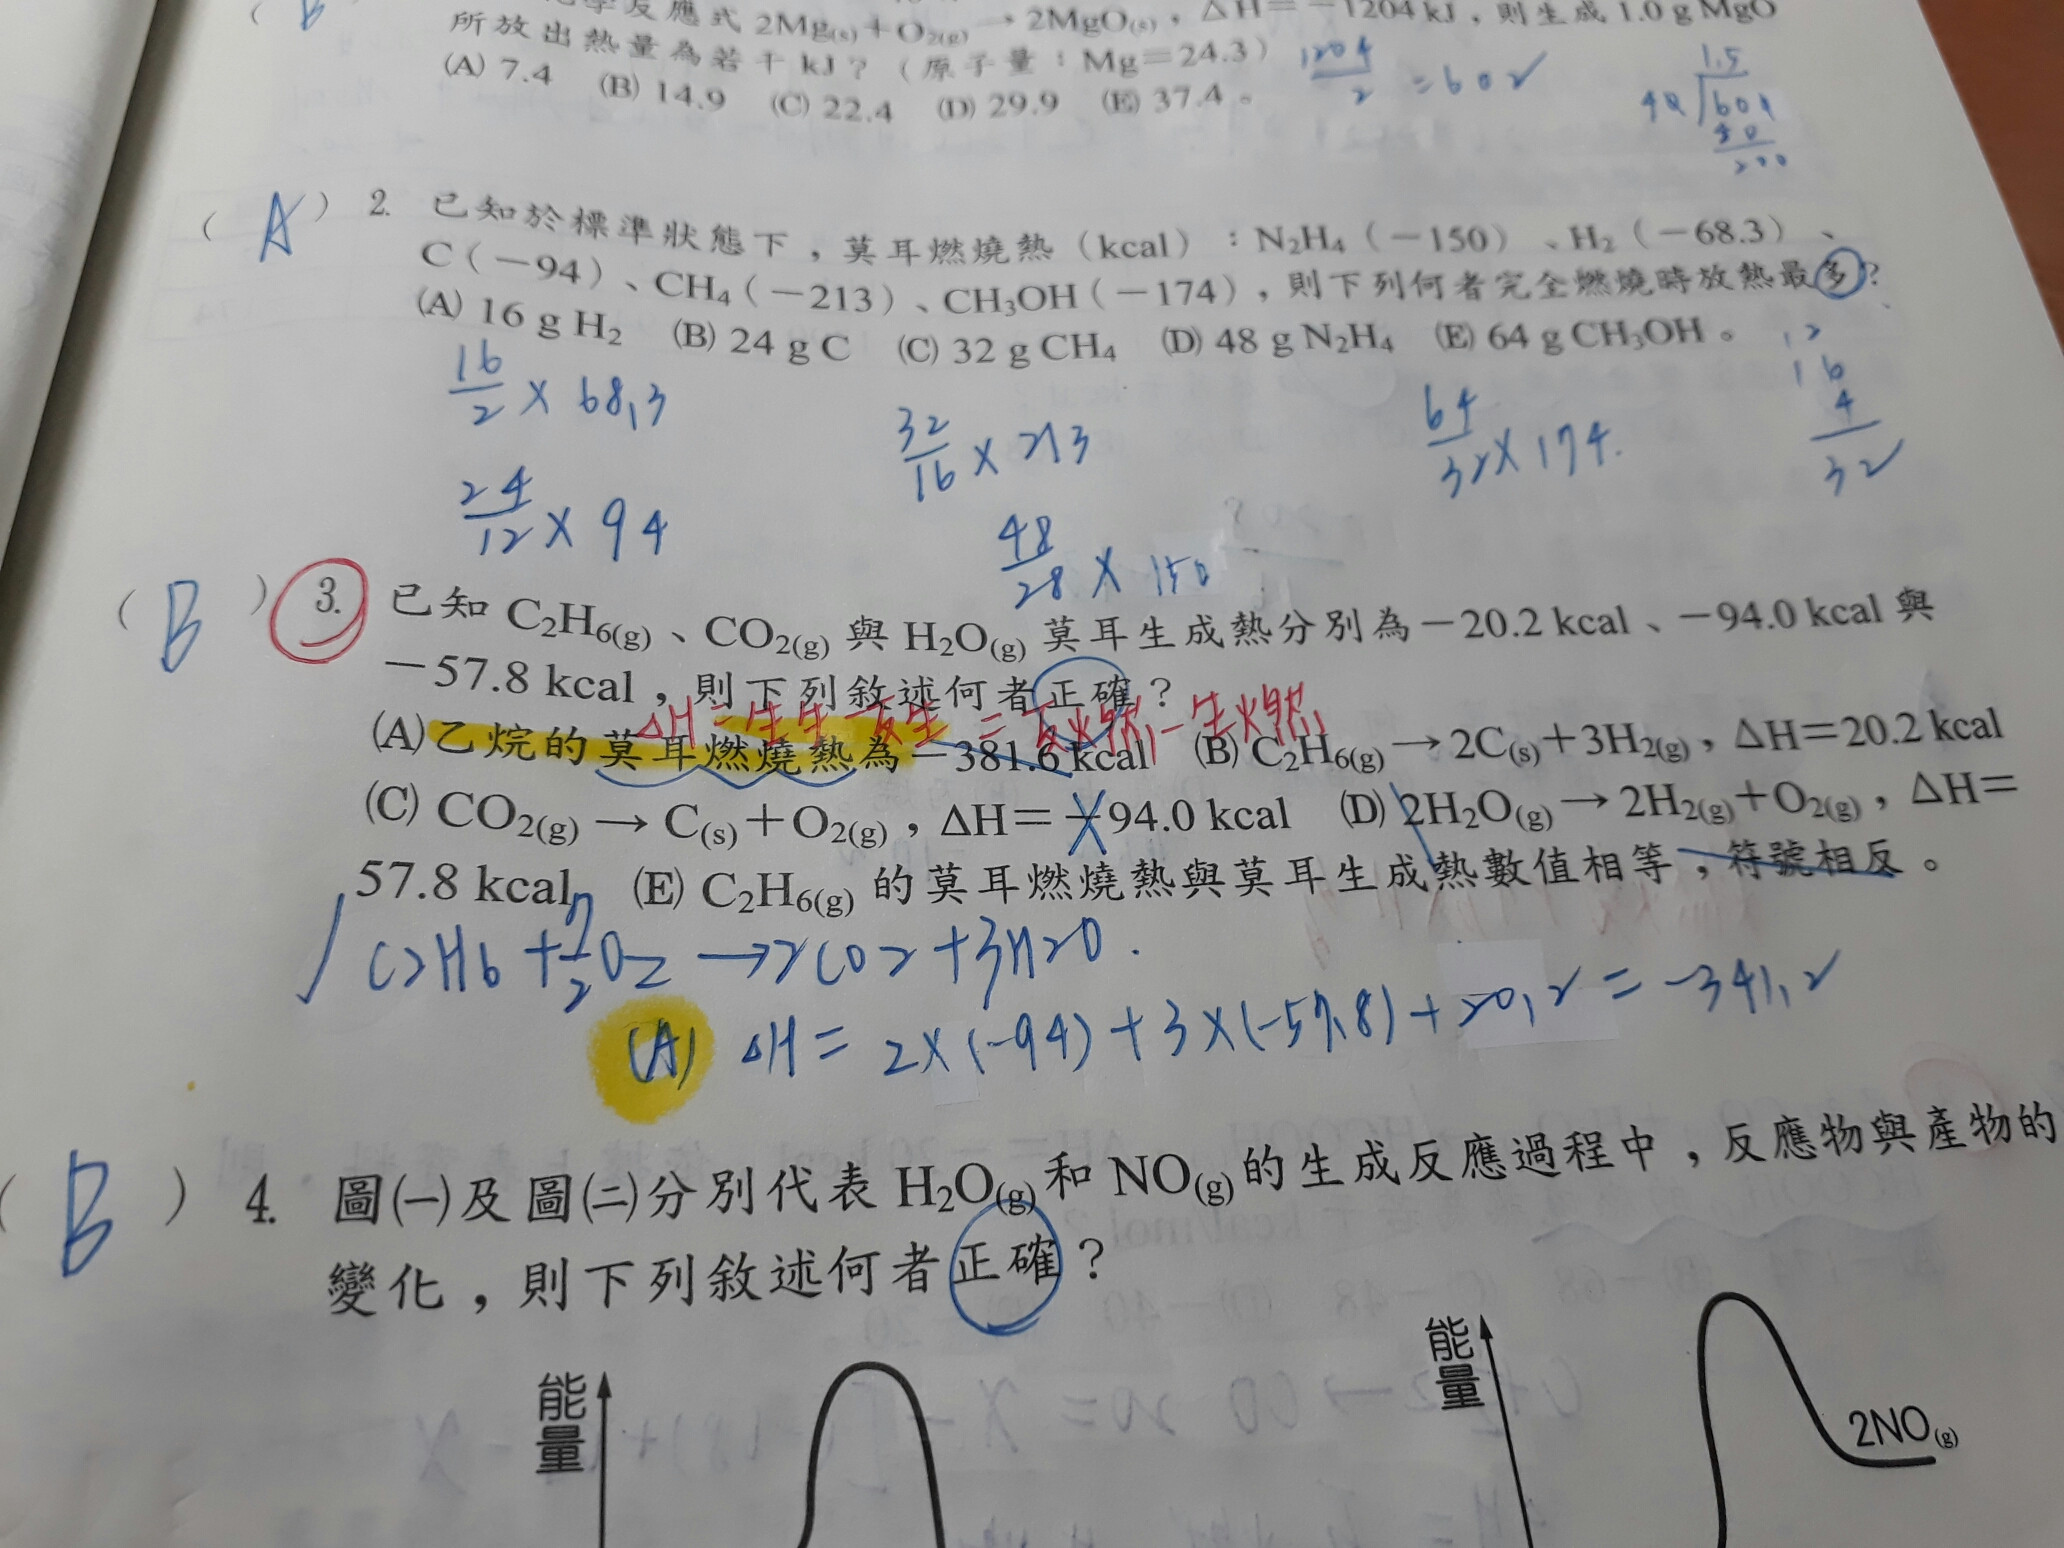 反應式 2Mg(s)+O2(g) → 2MgO(s),ΔH=-1204 kJ,則生成 1.0 g MgO
所放出熱量為若干 kJ?(原子量:Mg=24.3)
(A) 7.4 (B) 14.9 (C) 22.4 (D) 29.9 (E) 37.4。
1204/2 = 602
1.5
(A) 2. 已知於標準狀態下,莫耳燃燒熱(kcal):N2H4(-150)、H2(-68.3)、
C(-94)、CH4(-213)、CH3OH(-174),則下列何者完全燃燒時放熱最多?
(A) 16 g H2 (B) 24 g C (C) 32 g CH4 (D) 48 g N2H4 (E) 64 g CH3OH。
16/2 × 68.3
32/16 × 213
64/32 × 174
16
4
32
24/12 × 94
48/28 × 150
(B) 3. 已知 C2H6(g)、CO2(g) 與 H2O(g) 莫耳生成熱分別為-20.2 kcal、-94.0 kcal 與
-57.8 kcal,則下列敘述何者正確?
ΔH=生生-反生=反燃-生燃
(A) 乙烷的莫耳燃燒熱為-381.6 kcal (B) C2H6(g) → 2C(s)+3H2(g),ΔH=20.2 kcal
(C) CO2(g) → C(s)+O2(g),ΔH=-94.0 kcal (D) 2H2O(g) → 2H2(g)+O2(g),ΔH=
57.8 kcal (E) C2H6(g) 的莫耳燃燒熱與莫耳生成熱數值相等,符號相反。
C2H6 + 7/2 O2 → 2CO2 + 3H2O.
(A) ΔH = 2×(-94) + 3×(-57.8) + 20.2 = -341.2
(B) 4. 圖㈠及圖㈡分別代表 H2O(g) 和 NO(g) 的生成反應過程中,反應物與產物的
變化,則下列敘述何者正確?
能量
能量
2NO(g)